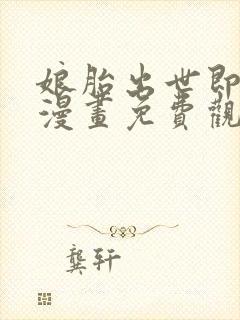 娘胎出世即
漫畫免費觀
龔轩